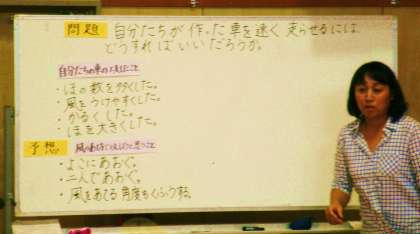 問題 自分たちが作った車を速く走らせるには
どうすればいいだろうか。
自分たちの車の工夫したこと
・ほの数を多くした。
・風をうけやすくした。
・かるくした。
・ほを大きくした。
予想
・よこにあおぐ。
・二人であおぐ。
・風をあてる角度をくふうする。